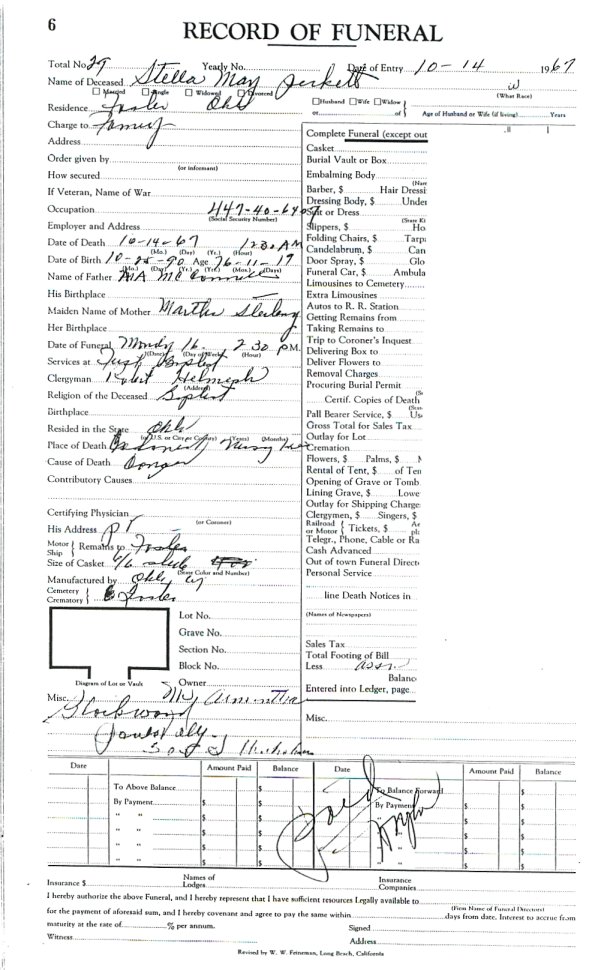 6
RECORD OF FUNERAL
Total No. 29 Yearly No. Date of Entry 10-14 1967
Name of Deceased Stella May w
Married Single Widowed Divorced (What Race)
Residence Foster Okla Husband Wife Widow
or of Age of Husband or Wife (if living) Years
Charge to Family
Address
Order given by
(or informant)
How secured
If Veteran, Name of War
Occupation 447-40-6407
(Social Security Number)
Employer and Address
Date of Death 10-14-67 12:30 AM
(Mo.) (Day) (Yr.) (Hour)
Date of Birth 10-25-90 Age 76-11-19
(Mo.) (Day) (Yr.) (Yrs.) (Mos.) (Days)
Name of Father
His Birthplace
Maiden Name of Mother Martha
Her Birthplace
Date of Funeral Mondy 16 2 30 PM
(Date) (Day of Week) (Hour)
Services at Baptist
Clergyman
(Address)
Religion of the Deceased Baptist
Birthplace
Resided in the State Okla
(or U.S. or City or County) (Years) (Months)
Place of Death
Cause of Death
Contributory Causes
Certifying Physician
(or Coroner)
His Address
Motor Ship Remains to Foster
Size of Casket 6/6
(State Color and Number)
Manufactured by Okla
Cemetery Crematory Foster
Lot No.
Grave No.
Section No.
Block No.
Diagram of Lot or Vault Owner
Misc.
Complete Funeral (except out
Casket
Burial Vault or Box
Embalming Body
(Nam
Barber, $ Hair Dressi
Dressing Body, $ Under
Suit or Dress
(State Ki
Slippers, $ Ho
Folding Chairs, $ Tarp
Candelabrum, $ Can
Door Spray, $ Glo
Funeral Car, $ Ambula
Limousines to Cemetery
Extra Limousines
Autos to R. R. Station
Getting Remains from
Taking Remains to
Trip to Coroner's Inquest
Delivering Box to
Deliver Flowers to
Removal Charges
Procuring Burial Permit
Certif. Copies of Death
Pall Bearer Service, $ Us
Gross Total for Sales Tax
Outlay for Lot
Cremation
Flowers, $ Palms, $
Rental of Tent, $ of Ten
Opening of Grave or Tomb
Lining Grave, $ Lowe
Outlay for Shipping Charge
Clergymen, $ Singers, $
Railroad or Motor Tickets, $
Telegr., Phone, Cable or Ra
Cash Advanced
Out of town Funeral Direct
Personal Service
line Death Notices in
(Names of Newspapers)
Sales Tax
Total Footing of Bill
Less
Balanc
Entered into Ledger, page
Misc.
Date Amount Paid Balance Date Amount Paid Balance
To Above Balance To Balance Forward
By Payment $ $ By Payment $ $
" " $ $ $ $
" " $ $ $ $
" " $ $ $ $
" " $ $ " $ $
Paid
Insurance $ Names of Lodges Insurance Companies
I hereby authorize the above Funeral, and I hereby represent that I have sufficient resources Legally available to
(Firm Name of Funeral Directors)
for the payment of aforesaid sum, and I hereby covenant and agree to pay the same within days from date. Interest to accrue from
maturity at the rate of % per annum. Signed
Witness Address
Revised by W. W. Feineman, Long Beach, California